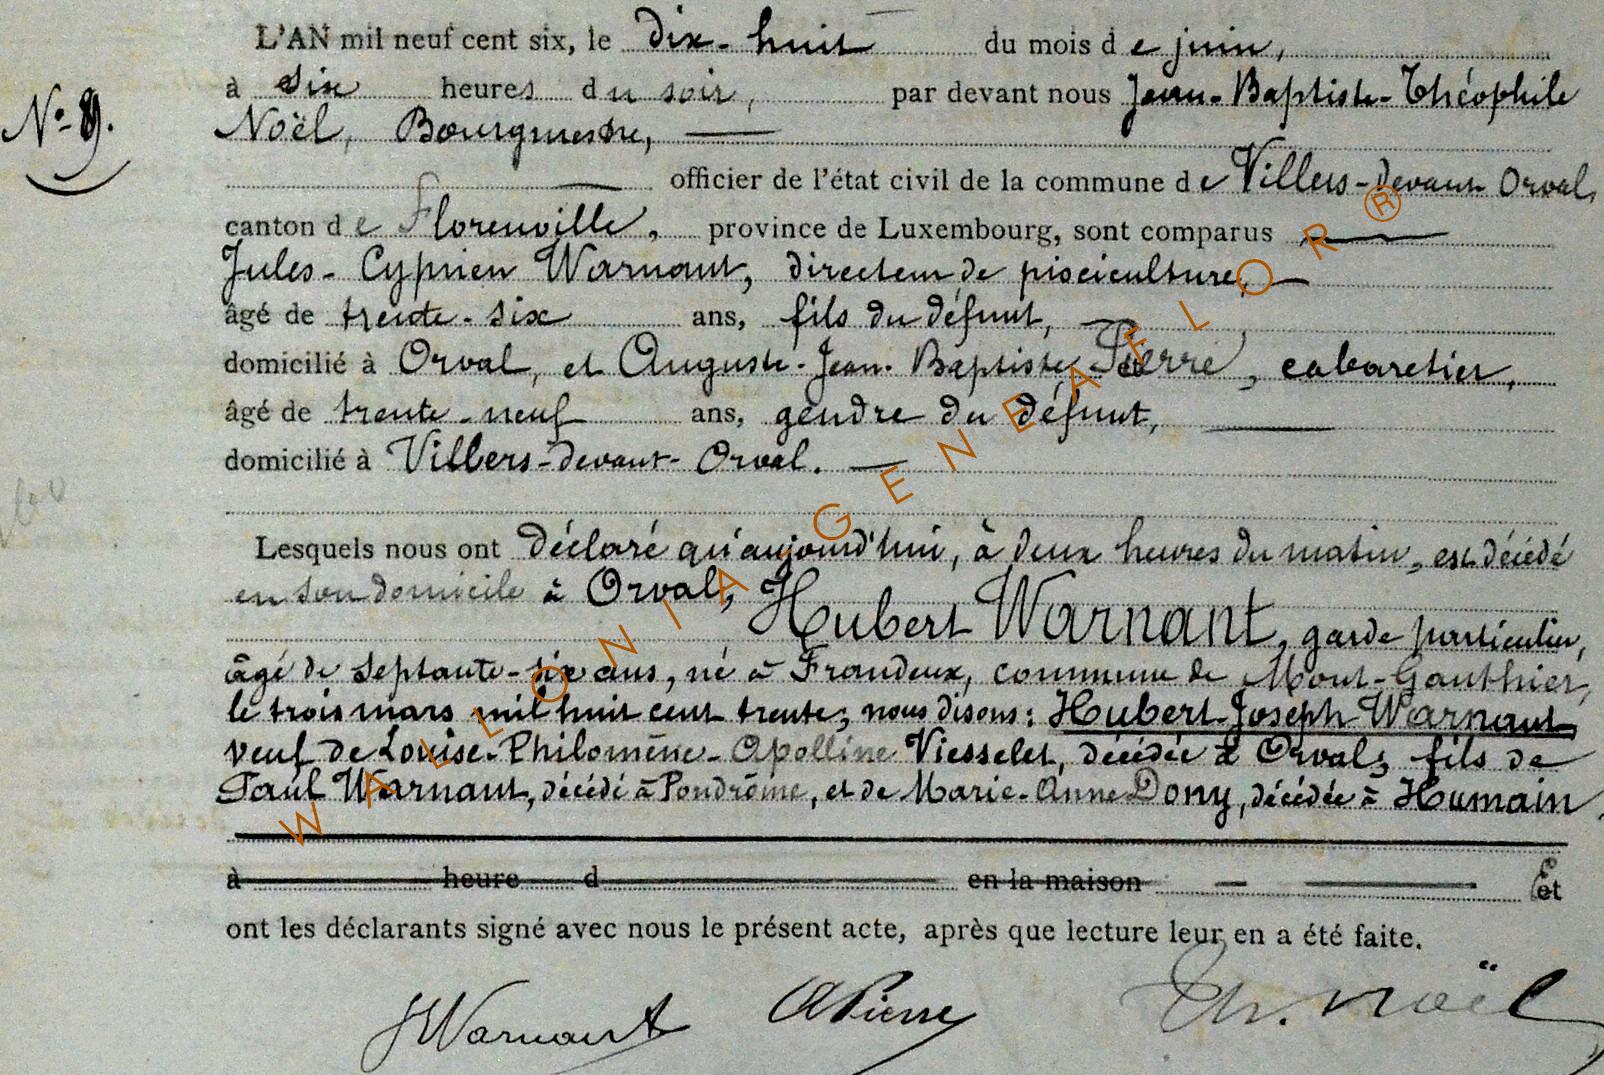 L'AN mil neuf cent six, le dix-huit du mois de juin,
à six heures du soir, par devant nous Jean-Baptiste-Théophile
N°. 9.
Noël, Bourgmestre,
officier de l'état civil de la commune de Villers-devant Orval,
canton de Florenville, province de Luxembourg, sont comparus
Jules-Cyprien Warnant, directeur de pisciculture,
âgé de trente-six ans, fils du défunt,
domicilié à Orval, et Auguste-Jean-Baptiste Pierre, cabaretier,
âgé de trente-neuf ans, gendre du défunt,
domicilié à Villers-devant-Orval.
Lesquels nous ont déclaré qu'aujourd'hui, à deux heures du matin, est décédé
en son domicile à Orval, Hubert Warnant, garde particulier,
âgé de septante-six ans, né à Frandeux, commune de Mont-Gauthier,
le trois mars mil huit cent trente; nous disons: Hubert-Joseph Warnant
veuf de Louise-Philomène-Apolline Viesselet, décédée à Orval; fils de
Paul Warnant, décédé à Pondrôme, et de Marie-Anne Dony, décédée à Humain.
à heure d en la maison Et
ont les déclarants signé avec nous le présent acte, après que lecture leur en a été faite.
JWarnant APierre Th. Noël
WALLONIA GENEAELOR ®